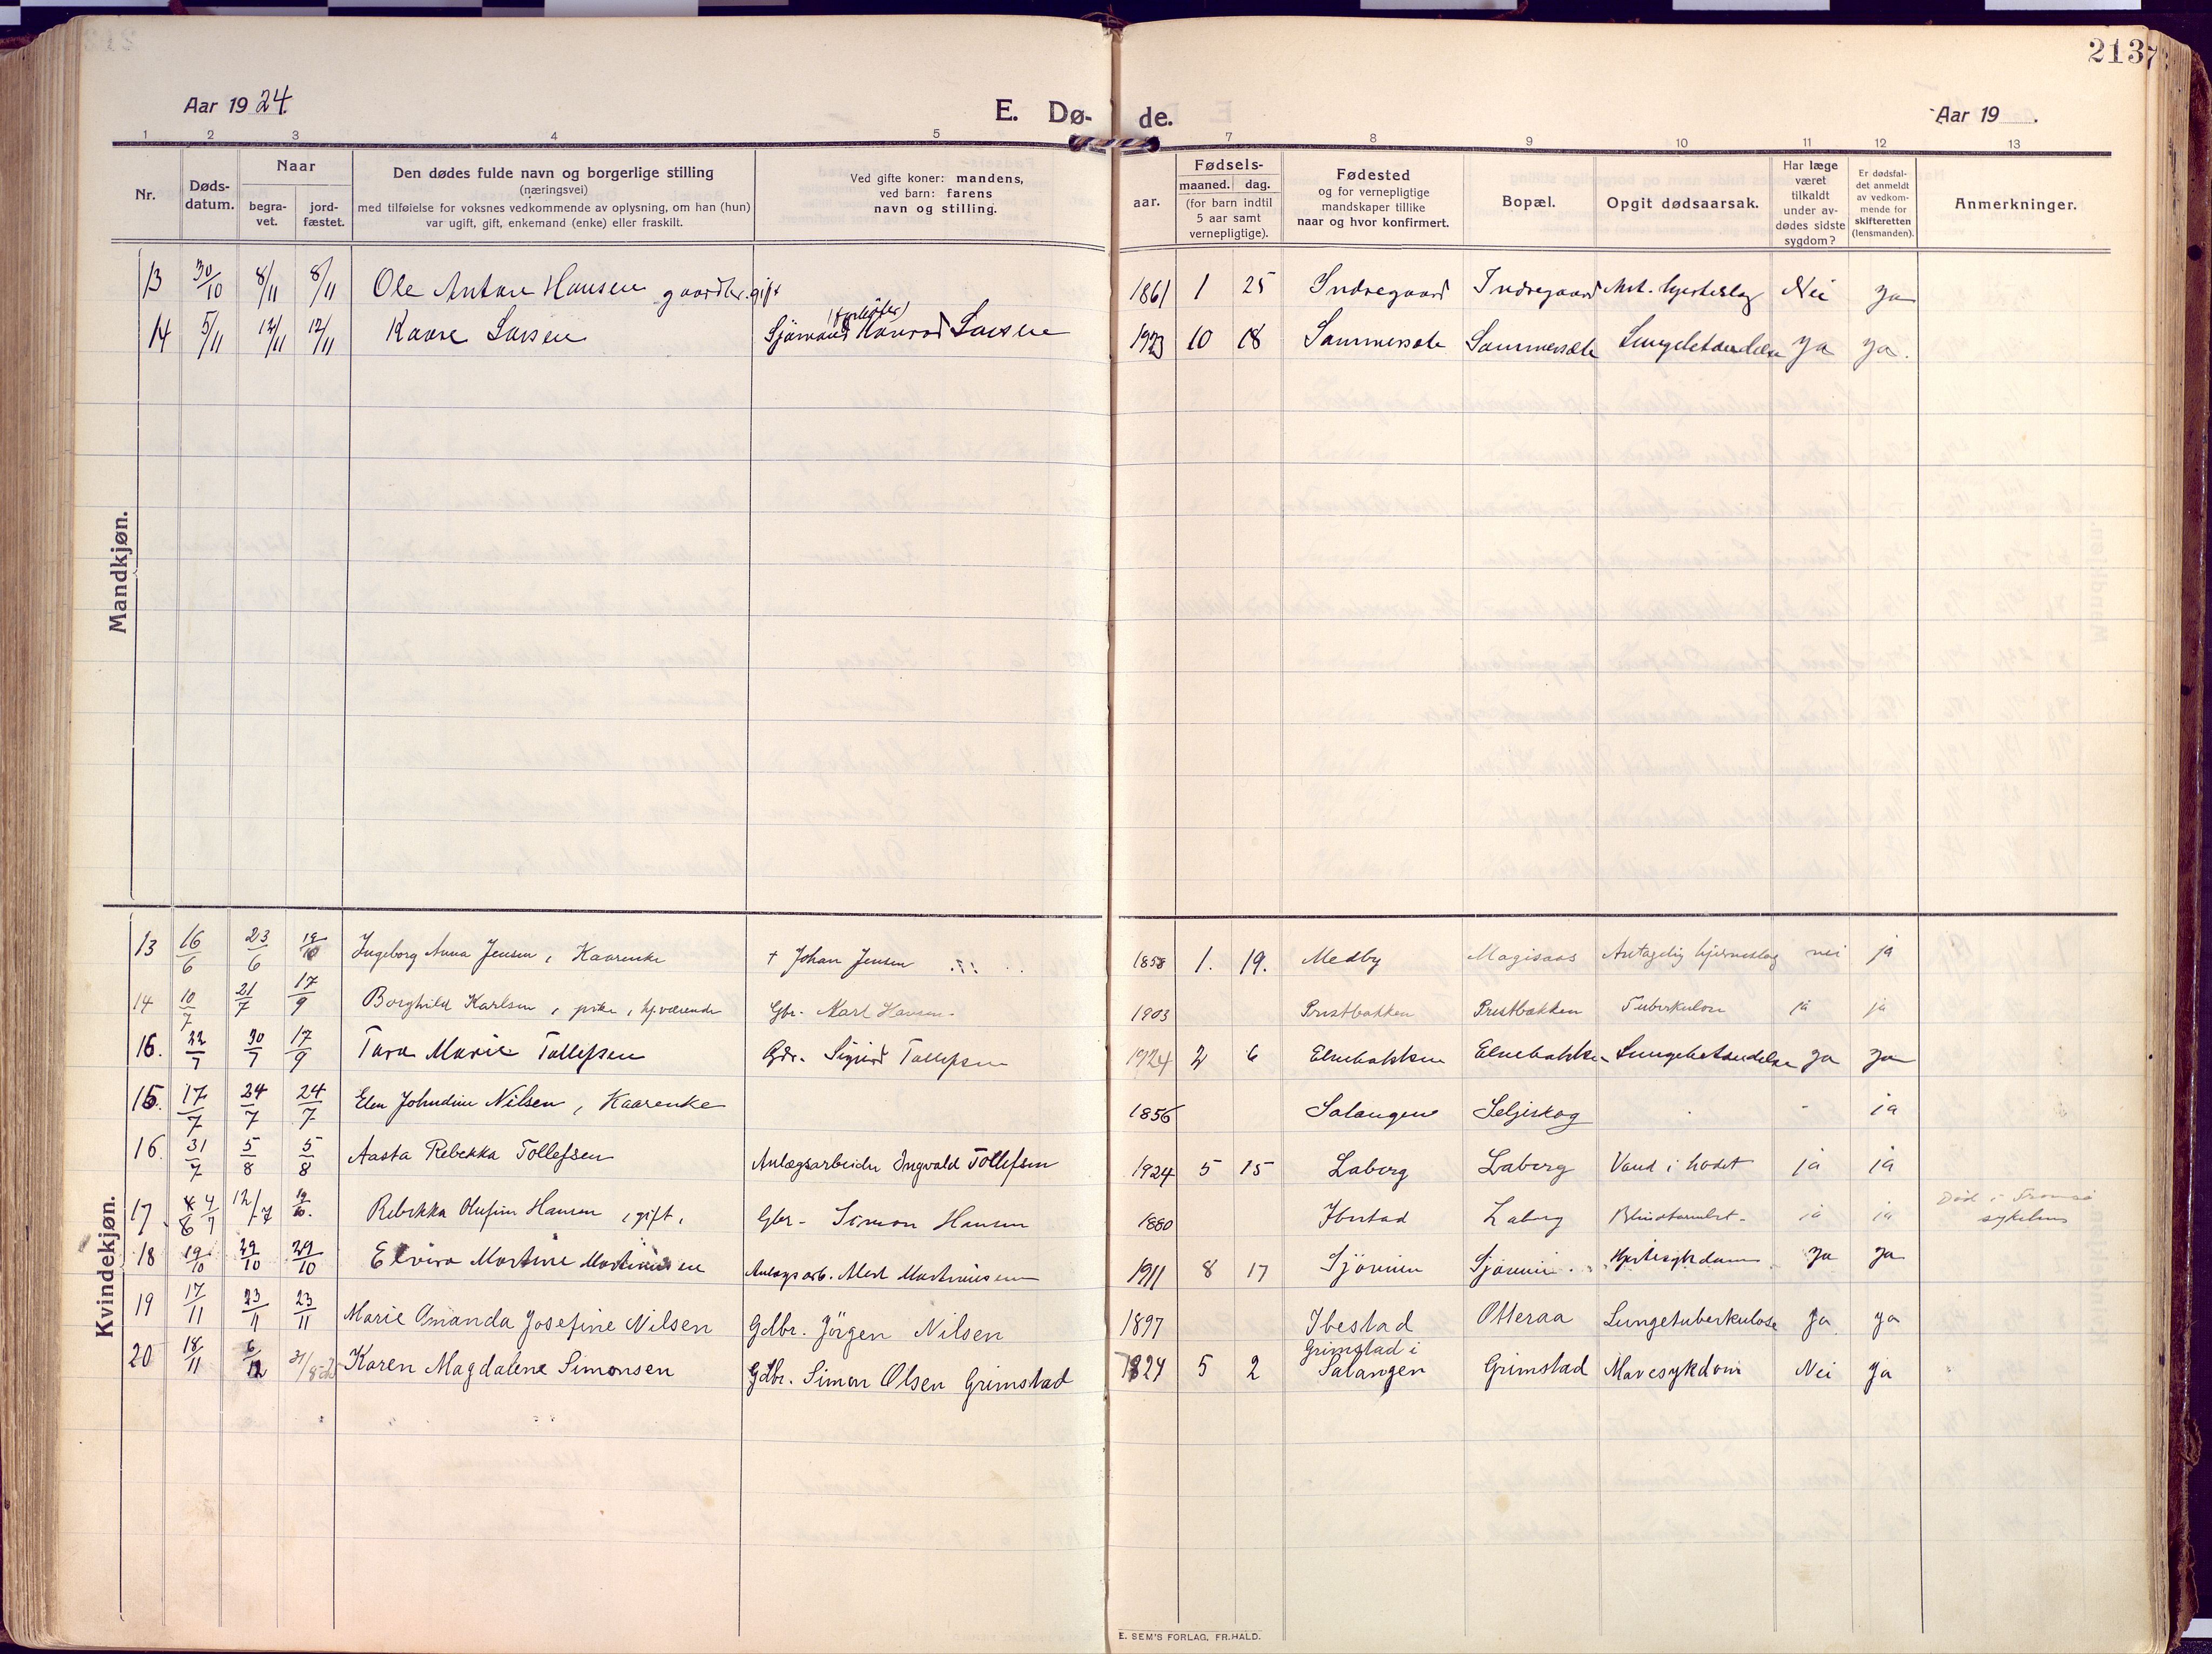 2137
Aar 1924.
E. Dø-
de.
Aar 19 .
1 2 3 4 5 7 8 9 10 11 12 13
Nr.
Døds-
datum.
Naar
begra-
vet.
jord-
fæstet.
Den dødes fulde navn og borgerlige stilling
(næringsvei)
med tilføielse for voksnes vedkommende av oplysning, om han (hun)
var ugift, gift, enkemand (enke) eller fraskilt.
Ved gifte koner: mandens,
ved barn: farens
navn og stilling.
Fødsels-
aar.
maaned. dag.
(for barn indtil
5 aar samt
vernepligtige).
Fødested
og for vernepligtige
mandskaper tillike
naar og hvor konfirmert.
Bopæl.
Opgit dødsaarsak.
Har læge
været
tilkaldt
under av-
dødes sidste
sygdom?
Er dødsfal-
det anmeldt
av vedkom-
mende for
skifteretten
(lensmanden).
Anmerkninger.
Mandkjøn.
13 30/10 8/11 8/11 Ole Antare Hansen gaardbr. gift 1861 1 25 Indregaard Indregaard Ant. hjerteslag Nei Ja
14 5/11 12/11 12/11 Kaare Larsen Sjømand Konrad Larsen 1923 10 18 Sommersæte Sommersæte Lungebetændelse Ja Ja.
Kvindekjøn.
13 16/6 23/6 19/10 Ingeborg Anna Jensen, Kaarenke + Johan Jensen 1858 1. 19. Medby Magisaas Antagelig hjerneslag nei ja
14 10/7 21/7 17/9 Borghild Karlsen, pike, hj.værende Gbr. Karl Hansen 1903 Prestbakken Prestbakken Tuberkulose ja ja
16. 22/7 30/7 17/9 Tora Marie Tollefsen Gdr. Sigurd Tollefsen 1924 2 6 Elvebakken Elvebakken Lungebetændelse Ja Ja
15. 17/7 24/7 24/7 Elen Johndine Nilsen, Kaarenke 1856 Salangen Seljeskog ja
16. 31/7 5/8 5/8 Aasta Rebekka Tollefsen Anlægsarbeider Ingvald Tollefsen 1924 5 15 Laberg Laberg Vand i hodet ja ja
17 4/7 12/7 19/10. Rebekka Olufine Hansen, gift, Gbr. Simon Hansen 1880 Ibestad Laberg Blindtarmbet. ja ja Død i Tromsø
sykehus
18 19/10 29/10 29/10 Elvira Martine Martinussen Anlægsarb. Martinussen 1911 8 17 Sjøvein Sjøvein Hjertesykdom Ja Ja
19 17/11 23/11 23/11 Marie Omanda Josefine Nilsen Gdbr. Jörgen Nilsen 1897 Ibestad Otteraa Lungetuberkulose Ja Ja
20 18/11 6/12 31/8 Karen Magdalene Simonsen Gdbr. Simon Olsen Grimstad 1824 5 2 Grimstad i
Salangen Grimstad Mavesykdom Nei Ja
E. SEM'S FORLAG, FR.HALD.